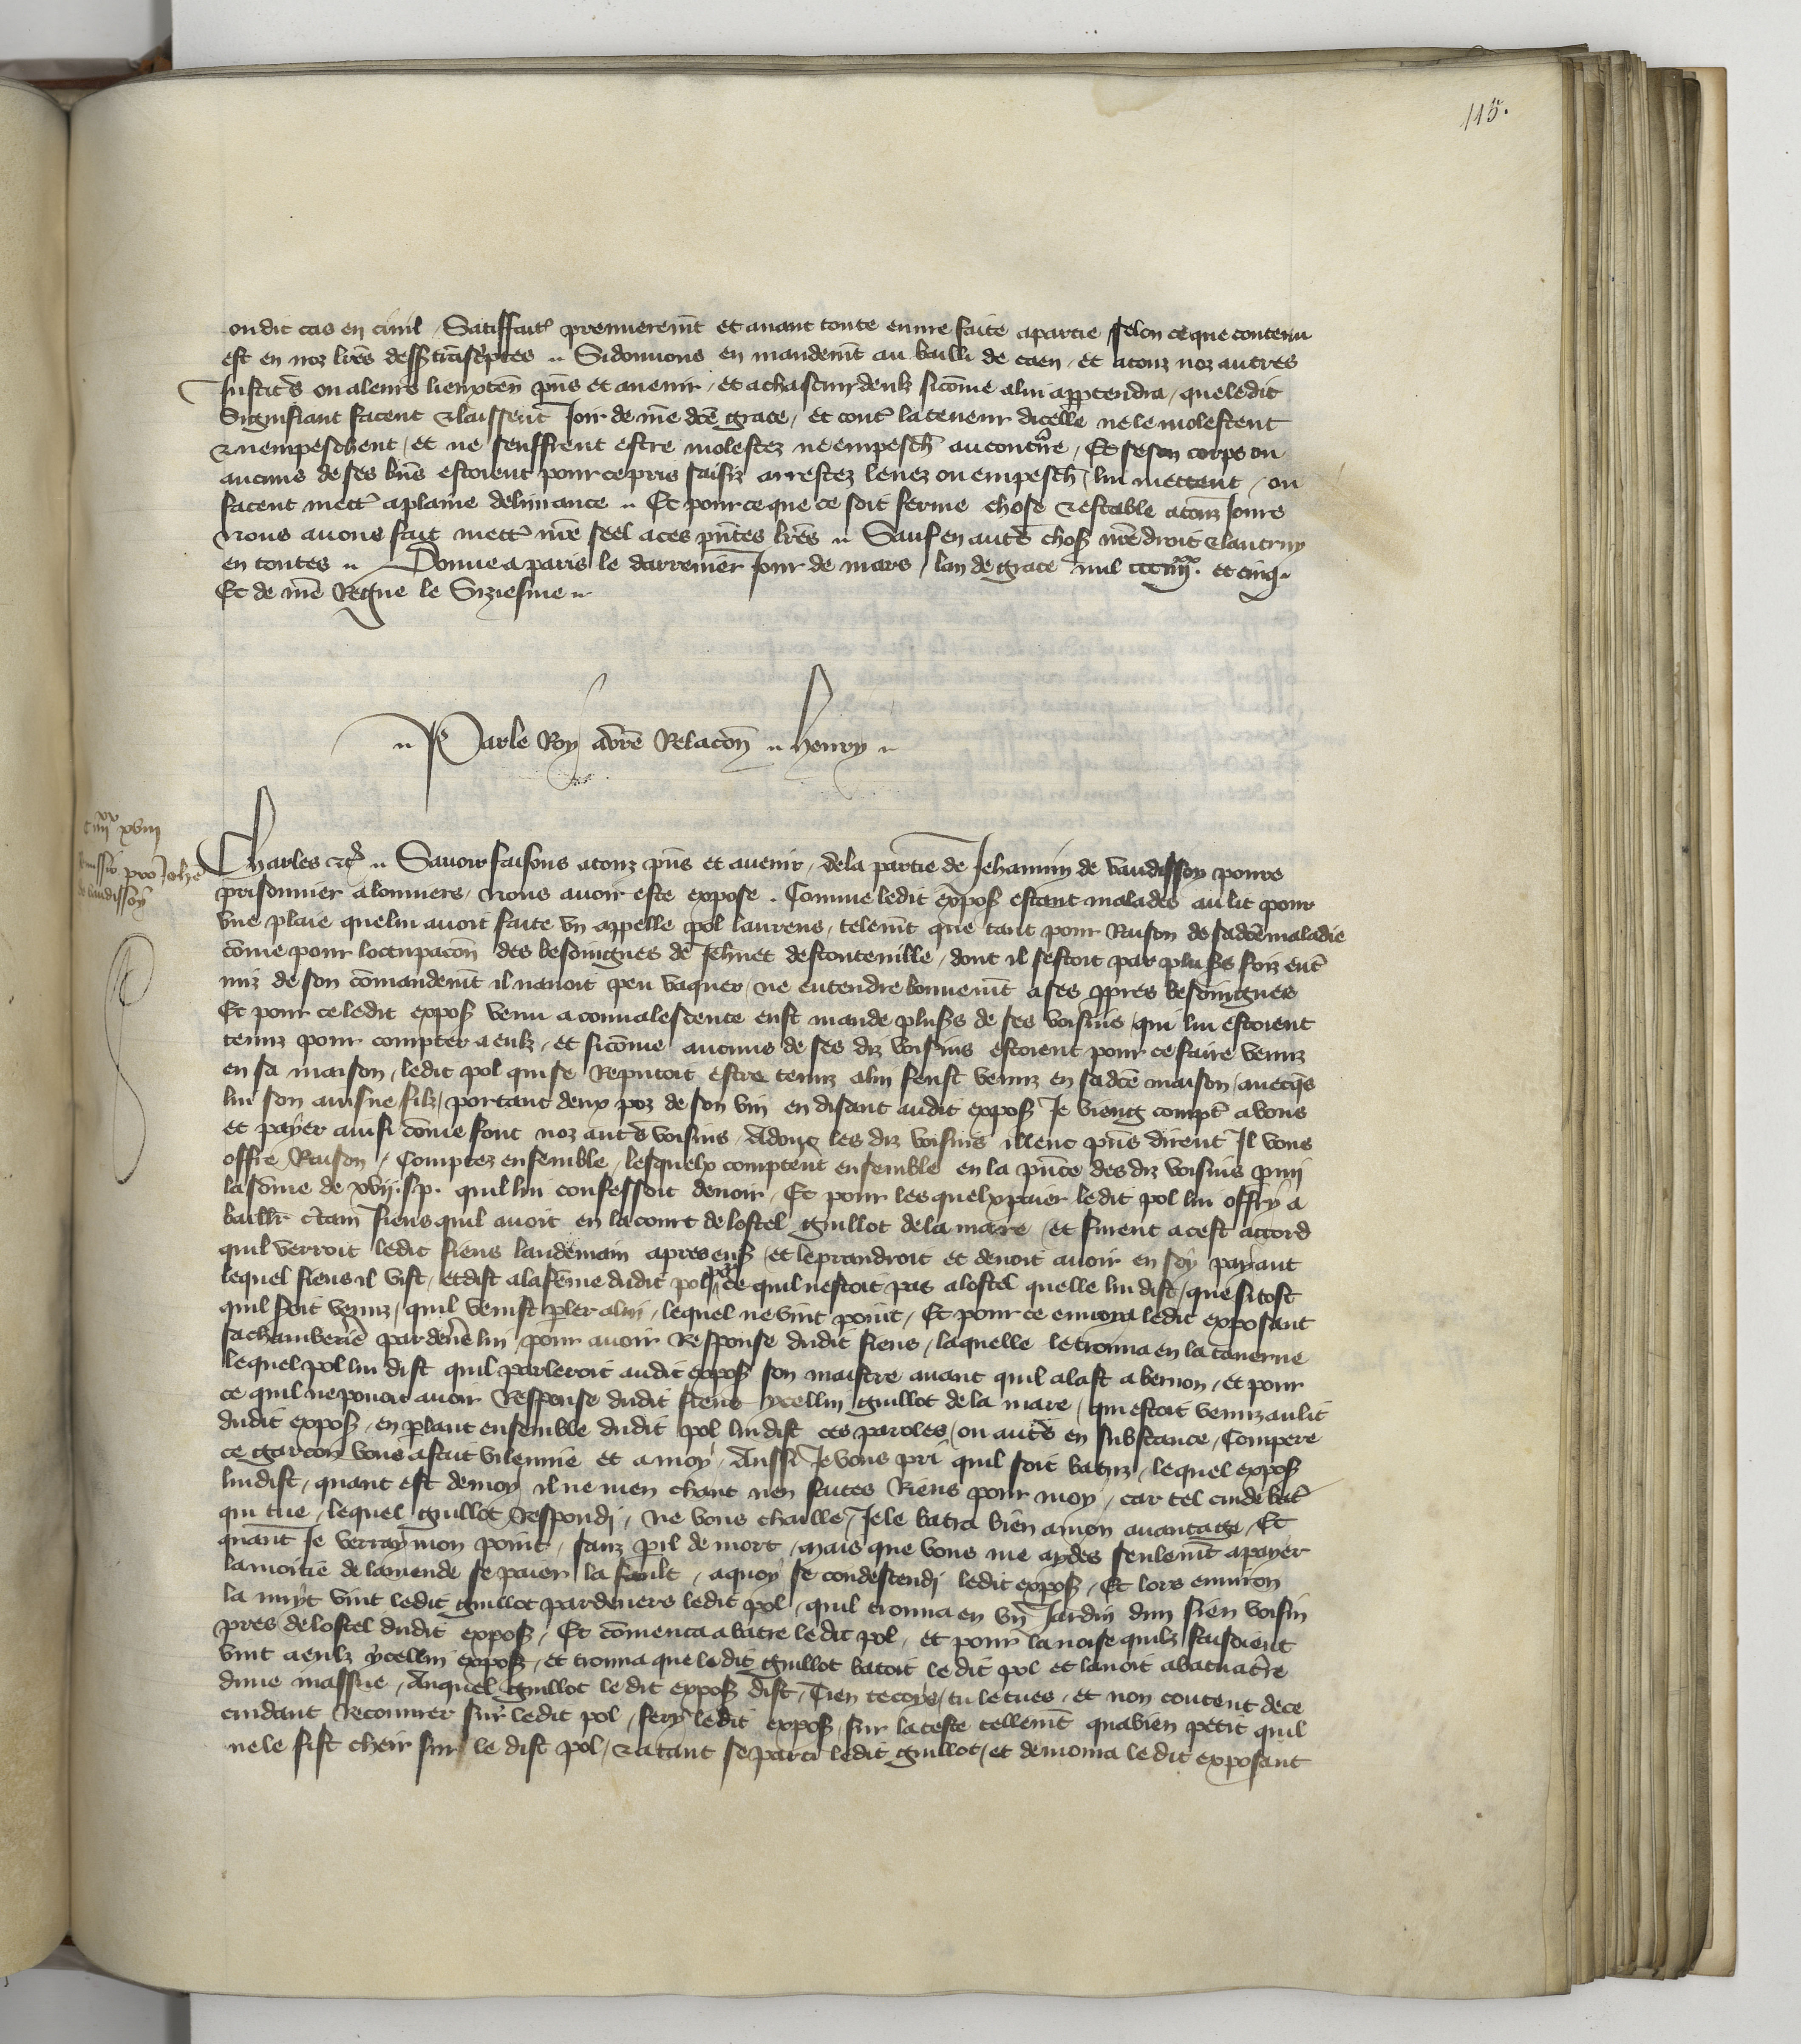 115.
ou dit cas en civil, Satiffait premierem̄t et avant toute euvre faite a partie selon ce que contenu
est en noz lr̄es dess tn̄scp̄tes .. Si donnons en mandem̄t au bailli de caen, et a touz noz autres
Justic̄s ou a leurs lieuxten̄ p̄ns et avenir, et a chascun deulx sicōme a lui app̄tendra, que ledit
Signifiant facent & laissent Joir de nr̄e dc̄e grace, et cont̄ la teneur dicelle ne le molestent
& nempeschent, et ne seuffrent estre molestez ne empesch̄ au contr̄re, Et se son corps ou
aucuns de ses bn̄s estoient pour ce pris saisiz arrestez levez ou empesch̄, lui mettent, ou
facent mett̄ a plaine delivrance .. Et pour ce que ce soit ferme chose & estable a touz Jours
Nous avons fait mett̄ nr̄e seel a ces pn̄tes lr̄es .. Sauf en aut̄s chos nr̄e droit & lautruy
en toutes .. Donne a paris le darrenier Jour de mars, lan de grace mil ccc iiijxx. et cinq.
Et de nr̄e Regne le Siziesme ..
.. Par le Roy a vr̄e Relacōn .. henry ..
c iiijxx xviij
Remissio pro Joh̄e
de vaudisson
Charles &c̄ .. Savoir faisons a touz p̄ns et avenir, de la partie de Jehannin de vaudisson povre
prisonnier a louviers, Nous avoir este expose. Comme ledit expos estant malades au lit pour
une plaie que lui avoit faite un appelle pol laurens, telem̄t que tant pour Raison de sa dc̄e maladie
cōme pour loccupacōn des besoingnes de Jehnet descouteville, dont il sestoit par plus̄s foiz ent̄
mis de son cōmandem̄t il navoit peu vaquer, ne entendre bonnem̄t a ses pp̄res besoingnes
Et pour ce ledit expos venu a convalescence eust mande plus̄s de ses voisins, qui lui estoient
tenuz pour compter a eulx, et sicōme aucuns de ses diz voisins estoient pour ce faire venuz
en sa maison, ledit pol qui se Reputoit estre tenuz a lui feust venuz en sa dc̄e maison, avecq̄s
lui son ainsne filz, portant deux poz de son vin en disant audit expos Je vieng compt̄ a vous
et payer ainsi cōme font noz aut̄s voisins, Adonc les diz voisins illeuc p̄ns dirent Il vous
offre Raison, Comptez ensemble, lesquelx compterent ensemble en la pn̄ce des diz voisins
la sōme de xvij.s.p. quil lui confessoit devoir, Et pour les quelx paier ledit pol lui offry a
bailler c̄tain fiens quil avoit en la court de lostel guillot de la mare, et furent a cest accord
quil verroit ledit fiens landemain apres eus, et le prandroit et devoit avoir en soy payant
lequel fiens il vist, et dist a la fēme dudit pol, pour ce quil nestoit pas a lostel quelle lui dist, que si tost
quil soit venuz, quil venist p̄ler a lui, lequel ne vint point, Et pour ce envoya ledit exposant
sa chamberiere par dev̄s lui, pour avoir Response dudit fiens, laquelle le trouva en la taverne
lequel pol lui dist quil parleroit audit expos son maistre avant quil alast a vernon, et pour
ce quil ne povoit avoir Response dudit fiens ycellui guillot de la mare, qui estoit venuz au lit
dudit expos, en p̄lant ensemble dudit pol lui dist ces paroles, ou aut̄s en substance, Compere
ce garcon vous a fait vilennie et a moy, Aussi Je vous pri quil soit batuz, lequel expos
lui dist, quant est de moy il ne men chaut nen faites Riens pour moy, car tel cuide bat̄
qui tue, lequel guillot Respondi, Ne vous chaille, Je le batra bien a mon avantage, Et
quant Je verray mon point, sanz p̄il de mort, mais que vous me aydes seulem̄t a payer
la moitie de lamende se paier la fault, a quoy se condescendi ledit expos, Et lors environ
la nuyt vint ledit guillot pardevers ledit pol, quil trouva en un Jardin dun sien voisin
pres de lostel dudit expos, Et cōmenca a batre ledit pol, et pour la noise quilz faisoient
vint a eulx ycellui expos, et trouva que ledit guillot batoit ledit pol et lavoit abatu a t̄re
dune massue, Auquel guillot ledit expos dist, Tien te coys, tu le tues, et non content de ce
cuidant Recouvrer sur ledit pol, fery ledit expos, sur la teste tellem̄t qua bien petit quil
ne le fist cheir sur le dist pol, & atant se parti ledit guillot, et demoura ledit exposant